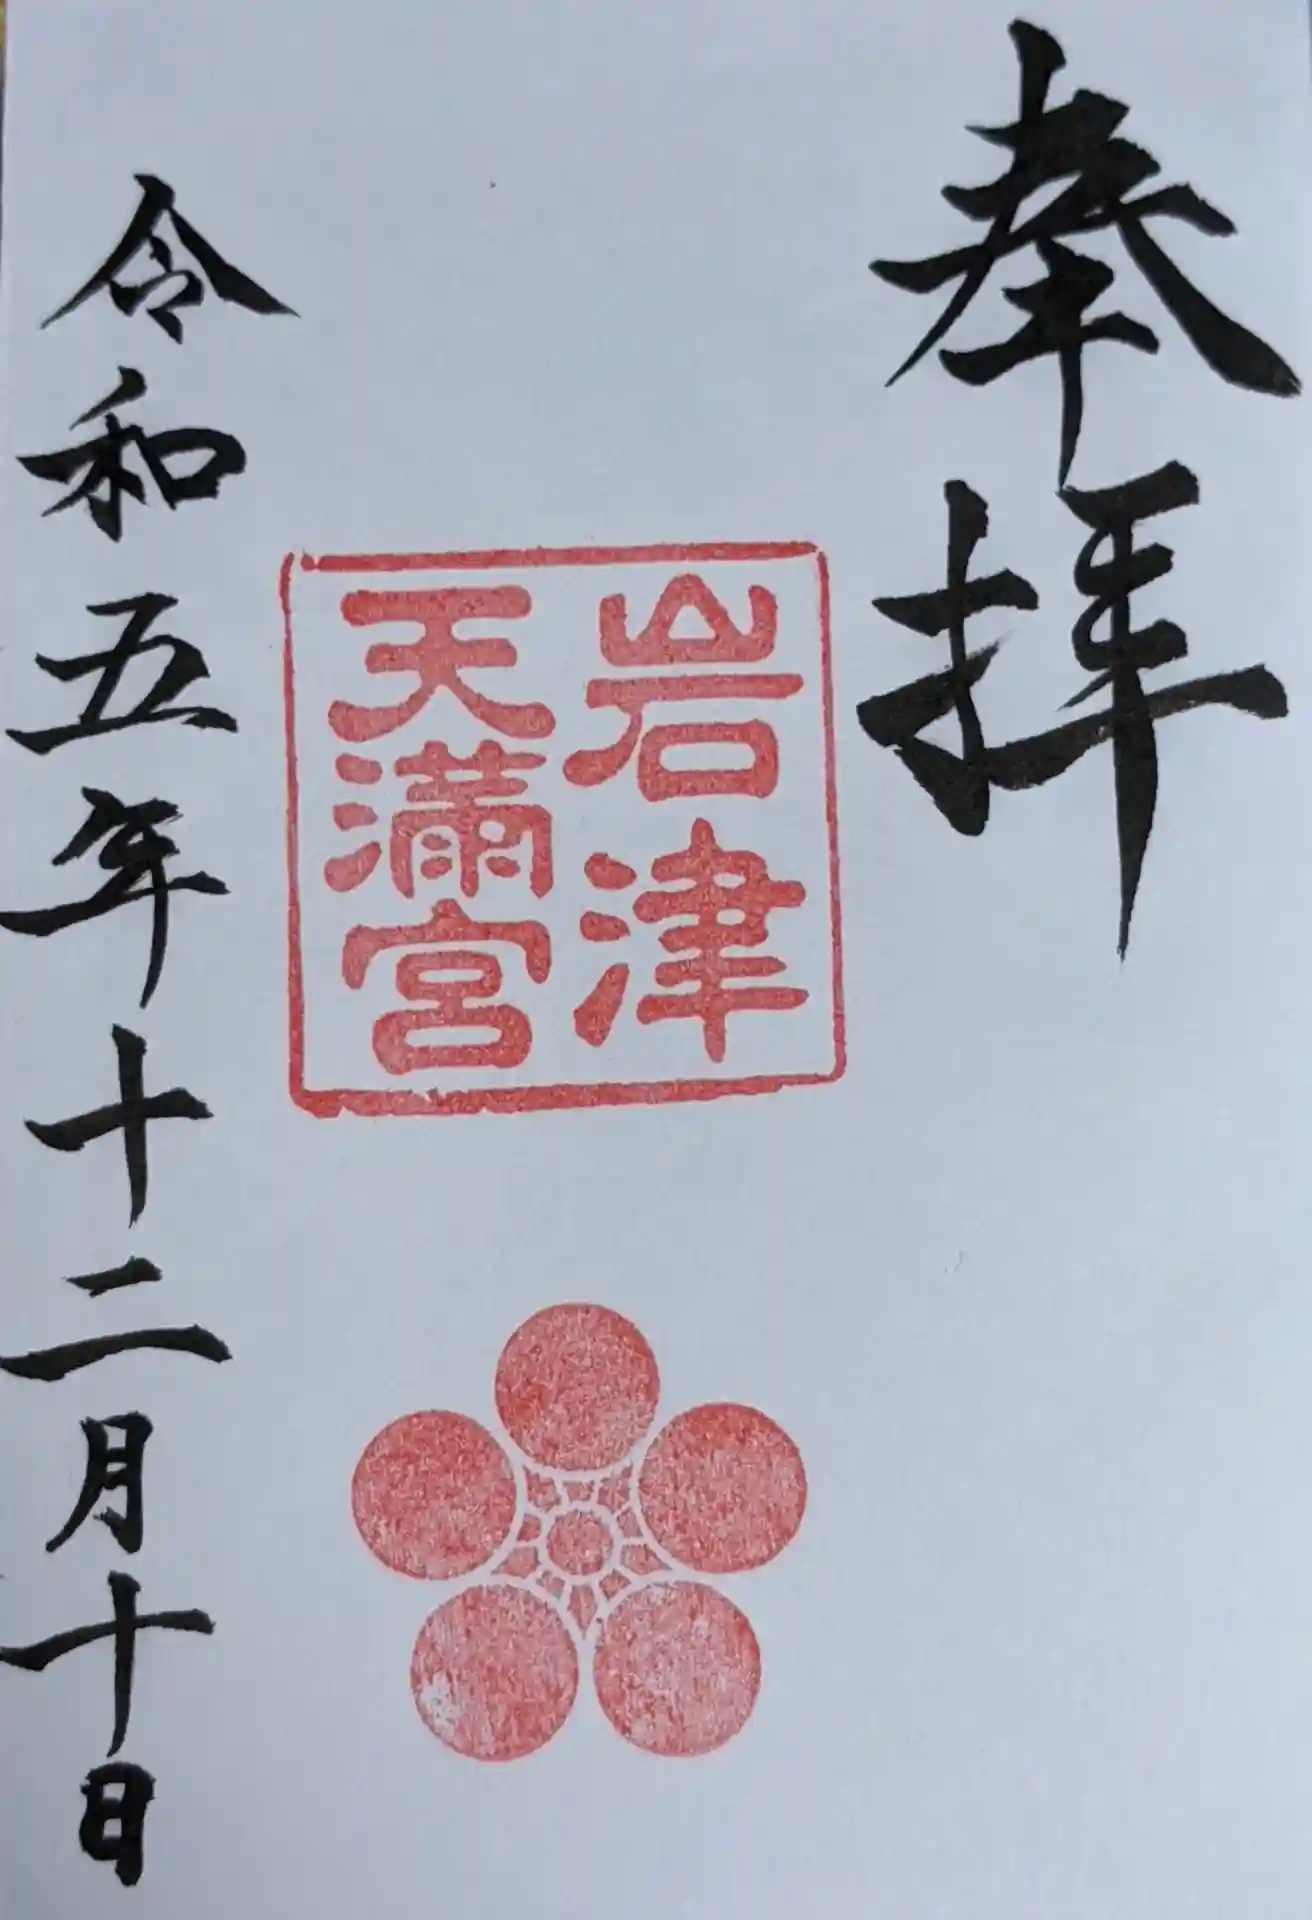 奉拝
岩津
天満宮
令和五年十二月十日